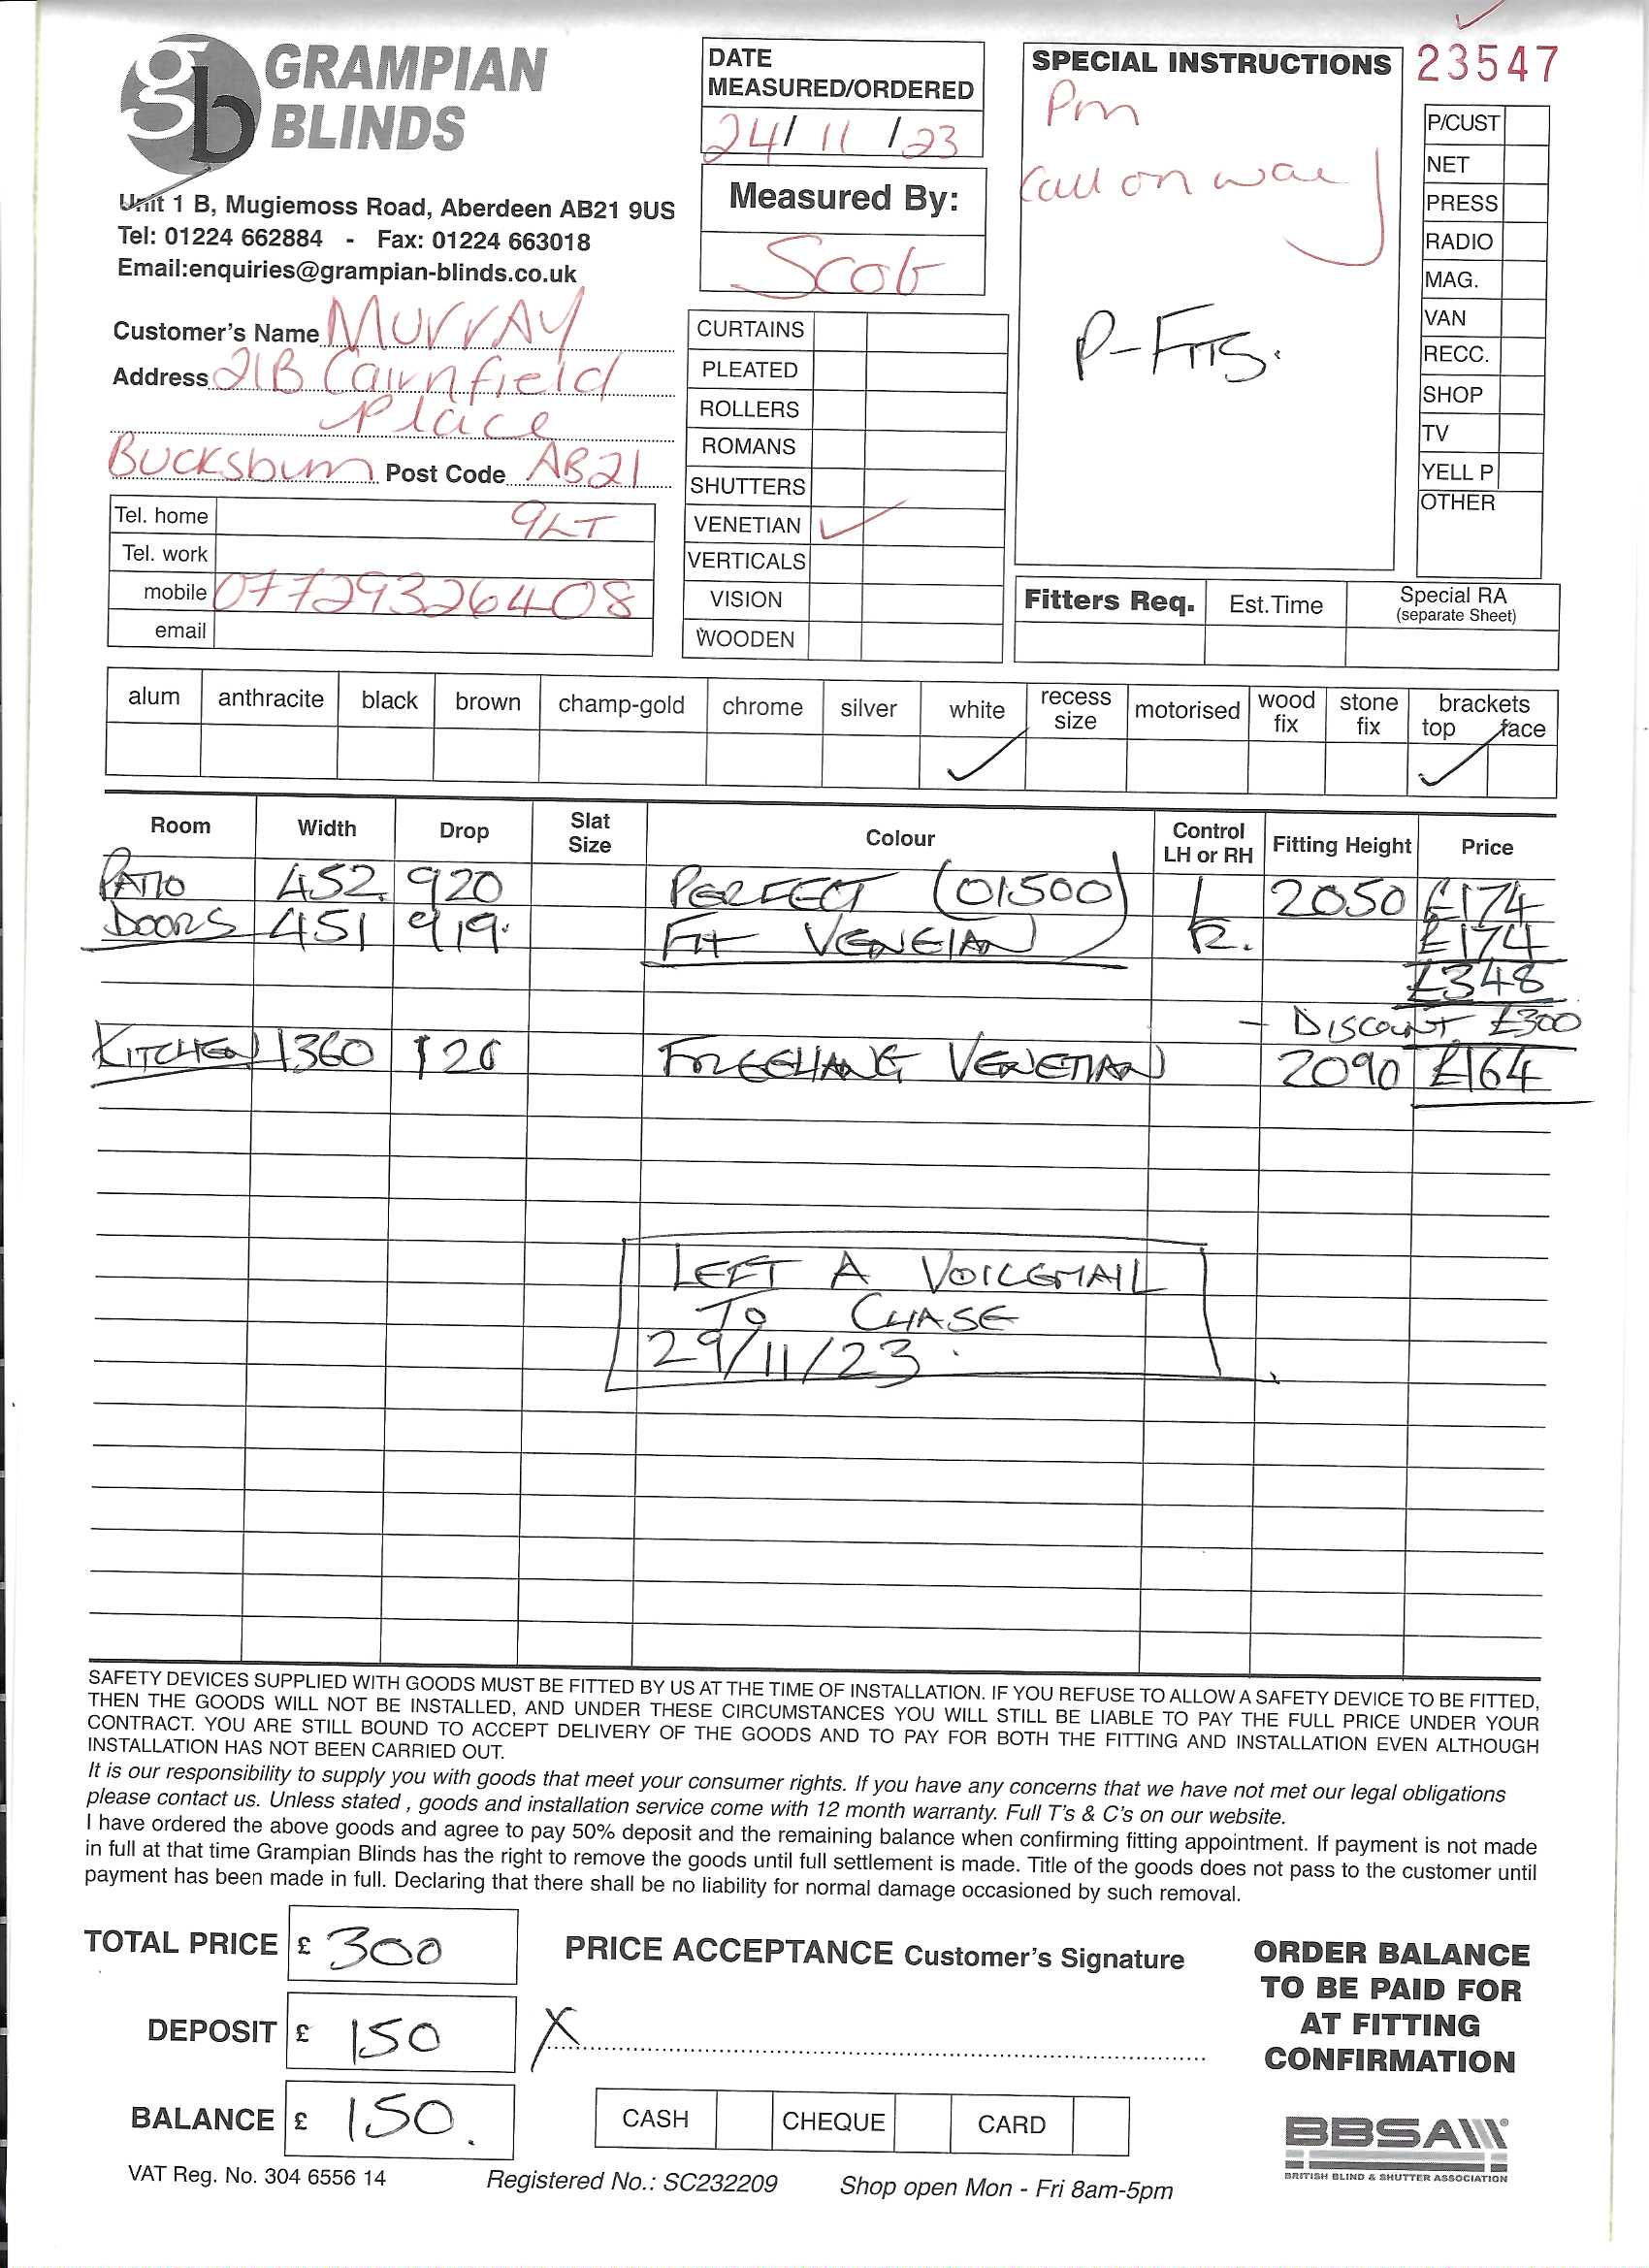 GRAMPIAN
BLINDS
Unit 1 B, Mugiemoss Road, Aberdeen AB21 9US
Tel: 01224 662884 - Fax: 01224 663018
Email:enquiries@grampian-blinds.co.uk
DATE
MEASURED/ORDERED
24/11/23
Measured By:
Scott
SPECIAL INSTRUCTIONS
Pm
Call on way
P-FITS.
23547
P/CUST
NET
PRESS
RADIO
MAG.
VAN
RECC.
SHOP
TV
YELL P
OTHER
Customer's Name MURRAY
Address 21B Cairnfield
Place
Bucksburn Post Code AB21
Tel. home 9LT
Tel. work
mobile 07729326408
email
CURTAINS
PLEATED
ROLLERS
ROMANS
SHUTTERS
VENETIAN ✓
VERTICALS
VISION
WOODEN
Fitters Req. Est.Time Special RA
(separate Sheet)
alum anthracite black brown champ-gold chrome silver white recess size motorised wood fix stone fix brackets
top face
✓ ✓
Room Width Drop Slat Size Colour Control LH or RH Fitting Height Price
PATIO 452 920 PERFECT (01500) L 2050 £174
DOORS 451 919 FIT VENEIAN R. £174
£348
- DISCOUNT £300
KITCHEN 1360 FREEHANG VENETIAN 2090 £164
LEFT A VOICEMAIL
TO CHASE
29/11/23
SAFETY DEVICES SUPPLIED WITH GOODS MUST BE FITTED BY US AT THE TIME OF INSTALLATION. IF YOU REFUSE TO ALLOW A SAFETY DEVICE TO BE FITTED,
THEN THE GOODS WILL NOT BE INSTALLED, AND UNDER THESE CIRCUMSTANCES YOU WILL STILL BE LIABLE TO PAY THE FULL PRICE UNDER YOUR
CONTRACT. YOU ARE STILL BOUND TO ACCEPT DELIVERY OF THE GOODS AND TO PAY FOR BOTH THE FITTING AND INSTALLATION EVEN ALTHOUGH
INSTALLATION HAS NOT BEEN CARRIED OUT.
It is our responsibility to supply you with goods that meet your consumer rights. If you have any concerns that we have not met our legal obligations
please contact us. Unless stated , goods and installation service come with 12 month warranty. Full T's & C's on our website.
I have ordered the above goods and agree to pay 50% deposit and the remaining balance when confirming fitting appointment. If payment is not made
in full at that time Grampian Blinds has the right to remove the goods until full settlement is made. Title of the goods does not pass to the customer until
payment has been made in full. Declaring that there shall be no liability for normal damage occasioned by such removal.
TOTAL PRICE £ 300
DEPOSIT £ 150
BALANCE £ 150.
PRICE ACCEPTANCE Customer's Signature
X
CASH CHEQUE CARD
ORDER BALANCE
TO BE PAID FOR
AT FITTING
CONFIRMATION
BBSA
BRITISH BLIND & SHUTTER ASSOCIATION
VAT Reg. No. 304 6556 14 Registered No.: SC232209 Shop open Mon - Fri 8am-5pm